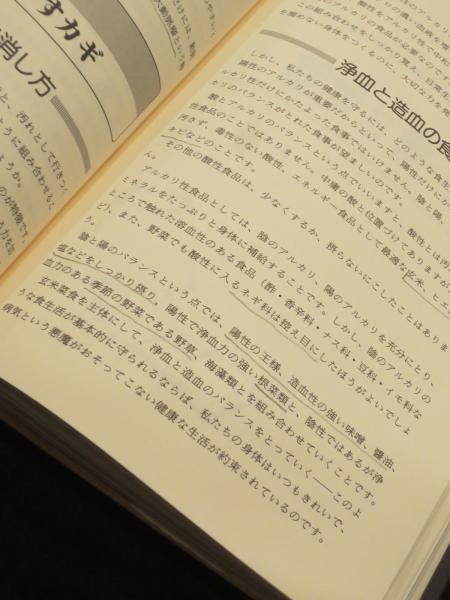 浄血と造血の食
しかし、私たちの健康を守るには、どのような食生
陽性のアルカリが重要だからといって、陽性だけにかた
ルカリ性だけにかたよった食事ではいけません。陰と陽、
カリのバランスがとれた食事が望ましいのです。
酸とアルカリのバランスという点でいいますと、酸性とは汚
性食品のことではありません。中庸の酸と位置づけてありますが
汚さず、毒性のない酸性、エネルギー食品として最適な玄米、ヒエ
キビなどのことです。
その他の酸性食品は、少なくするか、摂らないにこしたことはありま
ん。
アルカリ性食品としては、陰のアルカリ、陽のアルカリを充分にとり、
ミネラルをたっぷりと身体に補給することです。しかし、陰のアルカリの
ところで触れた溶血性のある食品(酢・香辛料・ナス科・豆科・イモ科な
ど)、また、野菜でも酸性に入るネギ科は控え目にしたほうがよいでしょ
う。
陰と陽のバランスという点では、陽性の王様、造血性の強い味噌、醤油、
塩などをしっかり摂り、陽性で浄血力の強い根菜類と、陰性ではあるが浄
血力のある季節の野菜である野草、海藻類とを組み合わせていくことです。
玄米菜食を主体にして、浄血と造血のバランスをとっていく――このよ
うな食生活が基本的に守られるならば、私たちの身体はいつもきれいで、
病気という悪魔がおそってこない健康な生活が約束されているのです。
すカギ
消し方